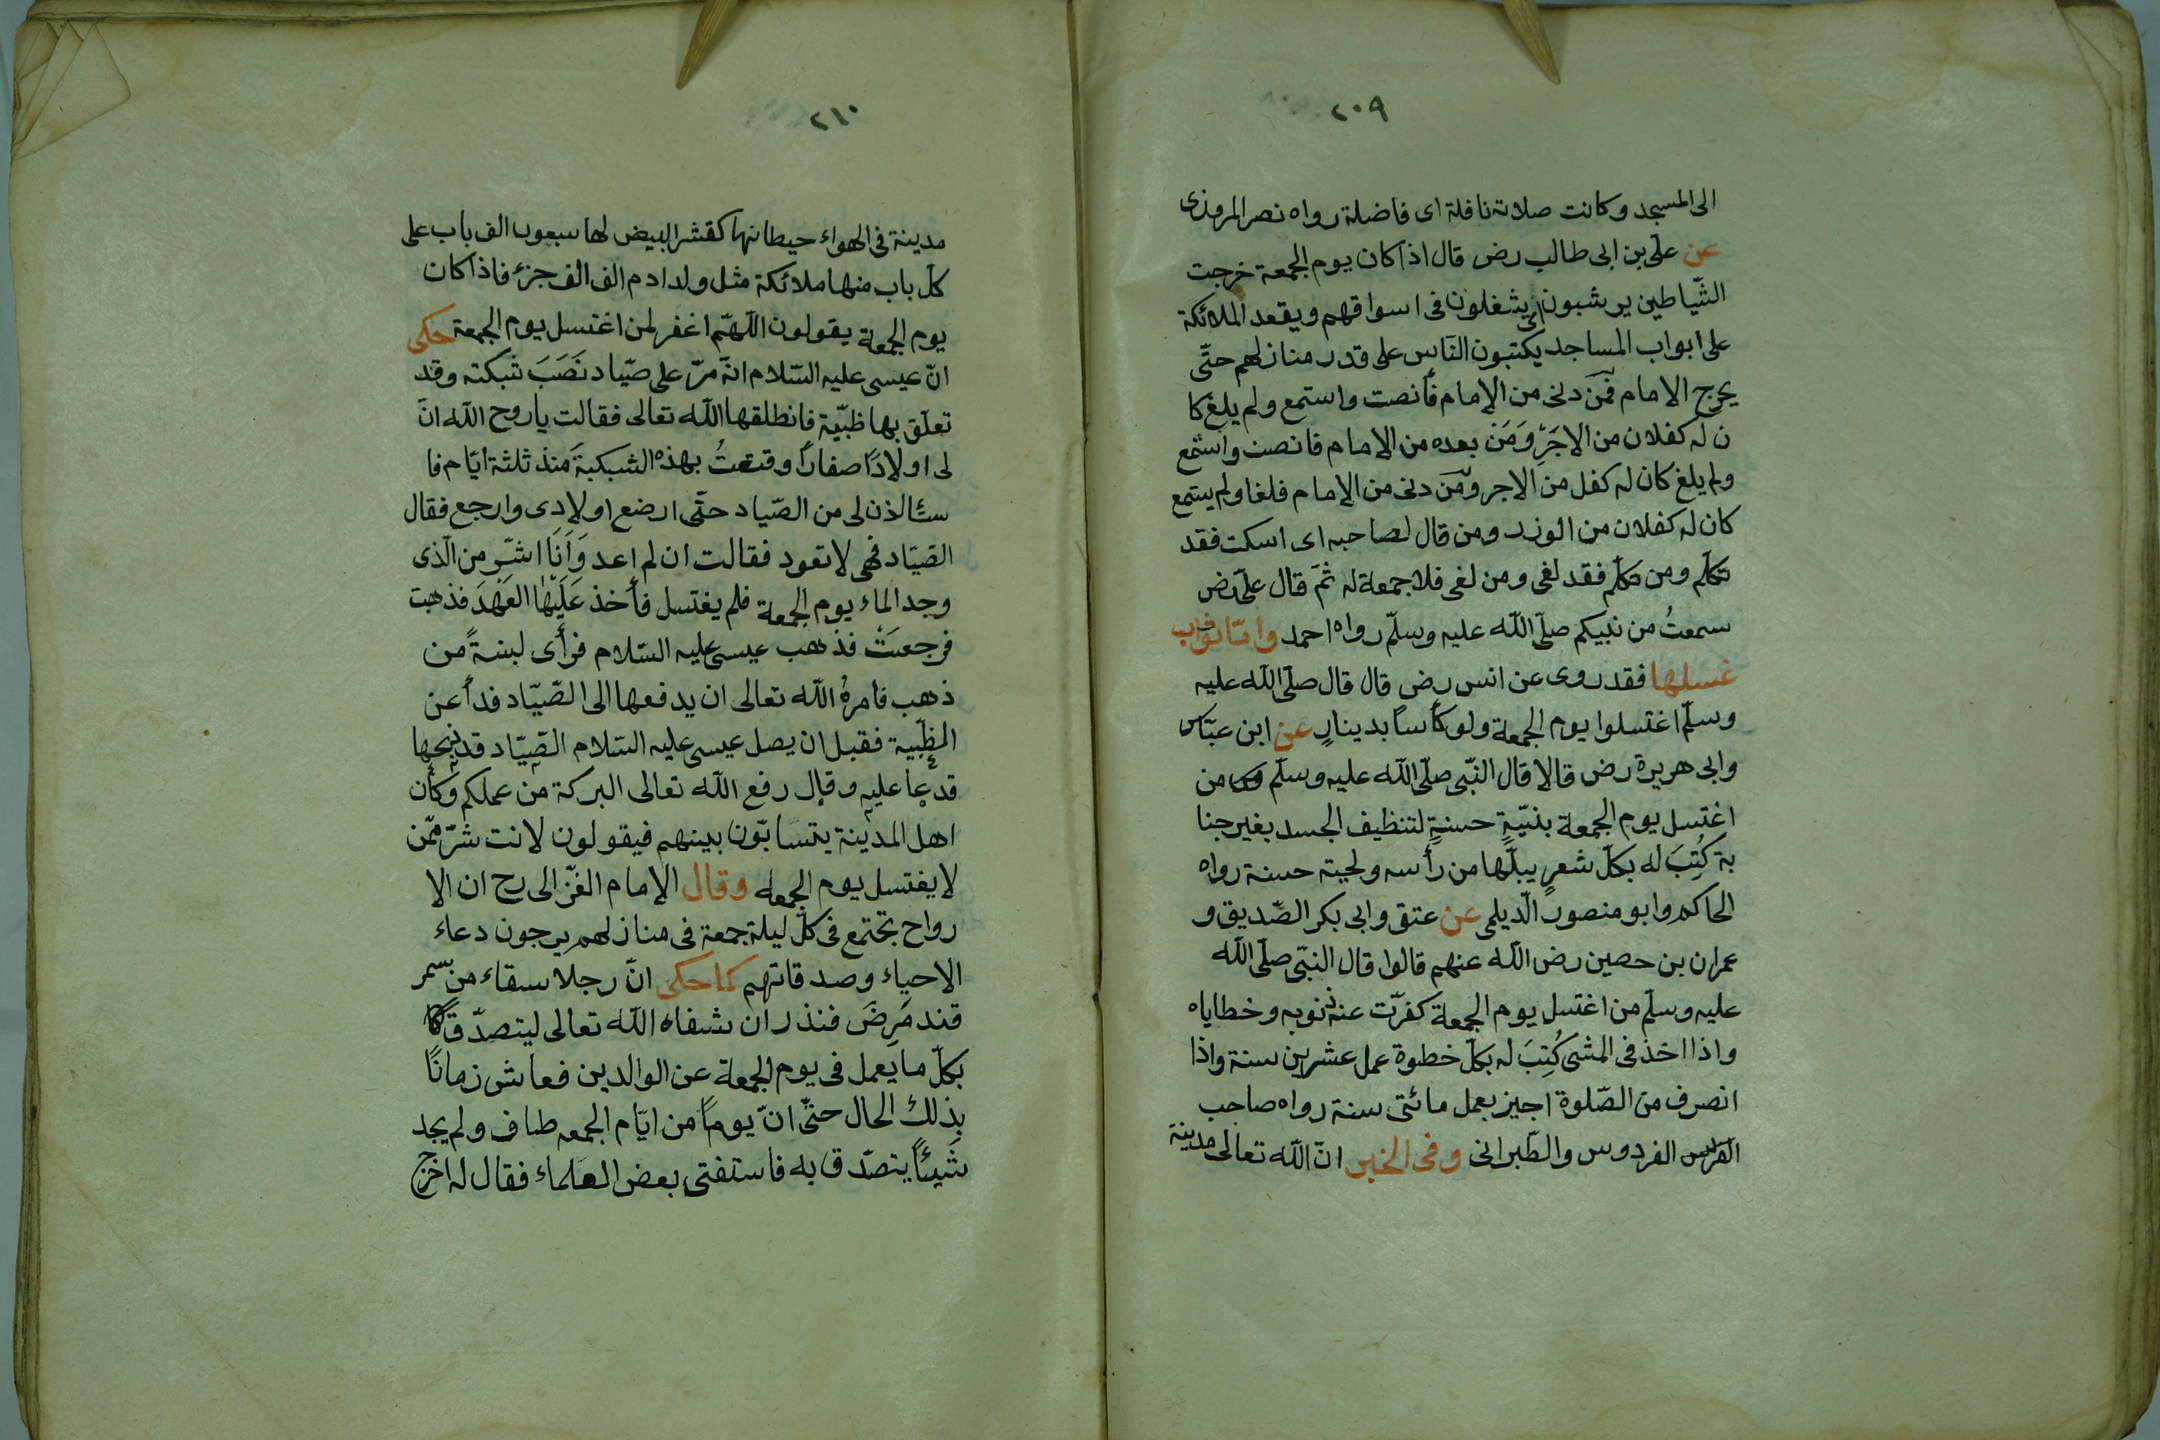 ٢٠٩
الى المسجد وكانت صلاته نافلة اى فاضلة رواه نصر المرمذى
عن علىّ بن ابى طالب رض قال اذا كان يوم الجمعة خرجت
الشّياطين يرشبون اى يشغلون فى اسواقهم ويقعد الملائكة
على ابواب المساجد يكتبون النّاس على قدر منازلهم حتّى
يخرج الامام فمَن دنى من الإمام فأنصت واستمع ولم يلغ كا
ن له كفلان من الاجَرِ وَمَن بعده من الامام فانصت واستمع
ولم يلغ كان له كفل من الاجر ومَن دنى من الإمام فلغا ولم يستمع
كان له كفلان من الوزر ومن قال لصاحبه اى اسكت فقد
تكلّم ومن تكلّم فقد لغى ومن لغى فلا جمعة له ثمّ قال علىّ رض
سمعتُ من نبيكم صلّى اللّه عليه وسلّم رواه احمد وامّا ثواب
غسلها فقد روى عن انس رض قال قال صلّى اللّه عليه
وسلّم اغتسلوا يوم الجمعة ولو كأسا بدينارٍ عن ابن عبّاس
وابى هريرة رض قالا قال النّبى صلّى اللّه عليه وسلّم من
اغتسل يوم الجمعة بنيّةٍ حسنةٍ لتنظيف الجسد بغير جنا
بة كُتِبَ له بكلّ شعرٍ يبلّها من رأسه ولحيته حسنة رواه
الحاكم وابو منصور الدّيلمى عن عتق وابى بكر الصّديق و
عمران بن حصين رض اللّه عنهم قالوا قال النبّى صلّى اللّه
عليه وسلّم من اغتسل يوم الجمعة كفرّت عنه ذنوبه وخطاياه
واذا اخذ فى المشى كُتِبَ له بكلّ خطوة عمل عشرين سنة واذا
انصرف من الصّلوة اجيز بعمل مائتى سنة رواه صاحب
الفردوس والطّبرانى وفى الخبر انّ اللّه تعالى مدينة
٢١٠
مدينة فى الهواء حيطانها كقشر البيض لها سبعون الف باب على
كلّ باب منها ملائكة مثل ولد ادم الف الف جزئ فاذا كان
يوم الجمعة يقولون اللّهمّ اغفر لمن اغتسل يوم الجمعة حكى
انّ عيسى عليه السّلام انّه مرّ على صيّاد نَصَبَ شبكته وقد
تعلّق بها ظبيّة فانطلقها اللّه تعالى فقالت يا روح اللّه انّ
لى اولادًا صغارًا وقتعتُ بهذه الشبكبة مَنذ ثلثة ايّام فا
ستألذن لى من الصّياد حتّى ارضع اولادى وارجع فقال
الصّيّاد فهى لا تعود فقالت ان لم اعد وَاَنَا اشّر من الّذى
وجد الماء يوم الجمعة فلم يغتسل فأخذ عَلَيْهٰا العَهْدَ فذهبت
فرجعتْ فذهب عيسى عليه السّلام فرأى لبنةً من
ذهب فامرهُ اللّه تعالى ان يدفعها الى الصّيّاد فدأ عن
الظّبية فقبل ان يصل عيسى عليه السّلام الصّيّاد قد ذبحها
فدعا عليه وقال رفع اللّه تعالى البركة من عملكم وكان
اهل المدينة يتسابّون بينهم فيقولون لانت شرّ ممّن
لا يغتسل يوم الجمعه وقال الإمام الغزّالى رح ان الا
رواح تجتمع فى كلّ ليلة جمعة فى منازلهم يرجون دعاء
الاحياء وصدقاتهم كما حكى انّ رجلا سقاء من سمر
قند مَرِضَ فنذر ان شفاه اللّه تعالى ليتصدّق
بكلّ ما يعمل فى يوم الجمعة عن الوالدين فعاش زمانًا
بذلك الحال حتّى انّ يومًا من ايّام الجمعه طاف ولم يجد
شَيئًا يتصدّق به فاستفتى بعض العلماء فقال له اخرج